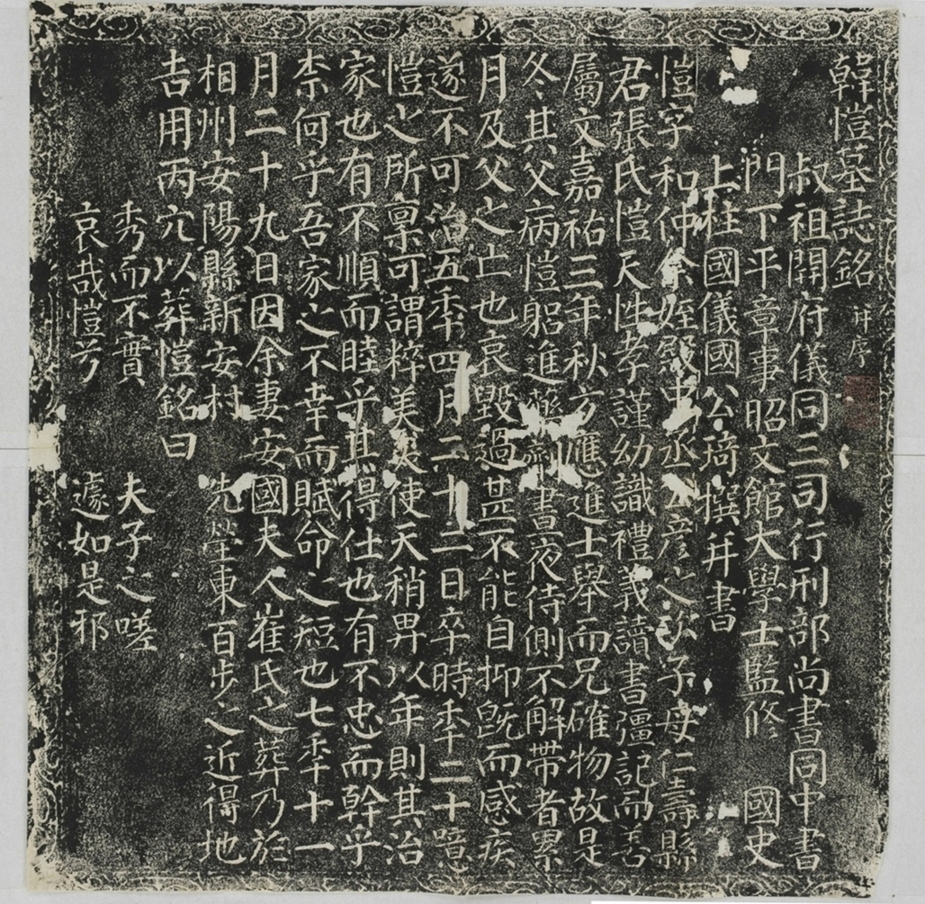 韓愷墓誌銘并序
叔祖開府儀同三司行刑部尚書同中書
門下平章事昭文館大學士監修 國史
上柱國儀國公琦撰并書
愷字和仲余姪殿中丞公彥之次子母仁壽縣
君張氏愷天性孝謹幼識禮義讀書彊記而善
屬文嘉祐三年秋方應進士舉而兄確物故是
冬其父病愷躬進藥劑晝夜侍側不解帶者累
月及父之亡也哀毀過甚不能自抑旣而感疾
遂不可治五秊四月二十二日卒時秊二十噫
愷之所稟可謂粹美矣使天稍畀以年則其治
家也有不順而睦乎其得仕也有不忠而幹乎
柰何乎吾家之不幸而賦命之短也七秊十一
月二十九日因余妻安國夫人崔氏之葬乃於
相州安陽縣新安村 先塋東百步之近得地
吉用丙穴以葬愷銘曰
秀而不實 夫子之嗟
哀哉愷兮 遽如是邪